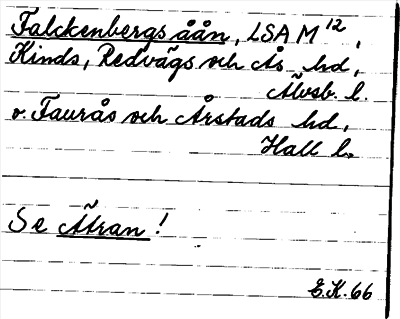 Falckenbergs åån, LSA M 12,
Kinds, Redvägs och Ås hd,
Älvsb. l.
o. Faurås och Årstads hd,
Hall l.
Se Ätran!
E.K. 66